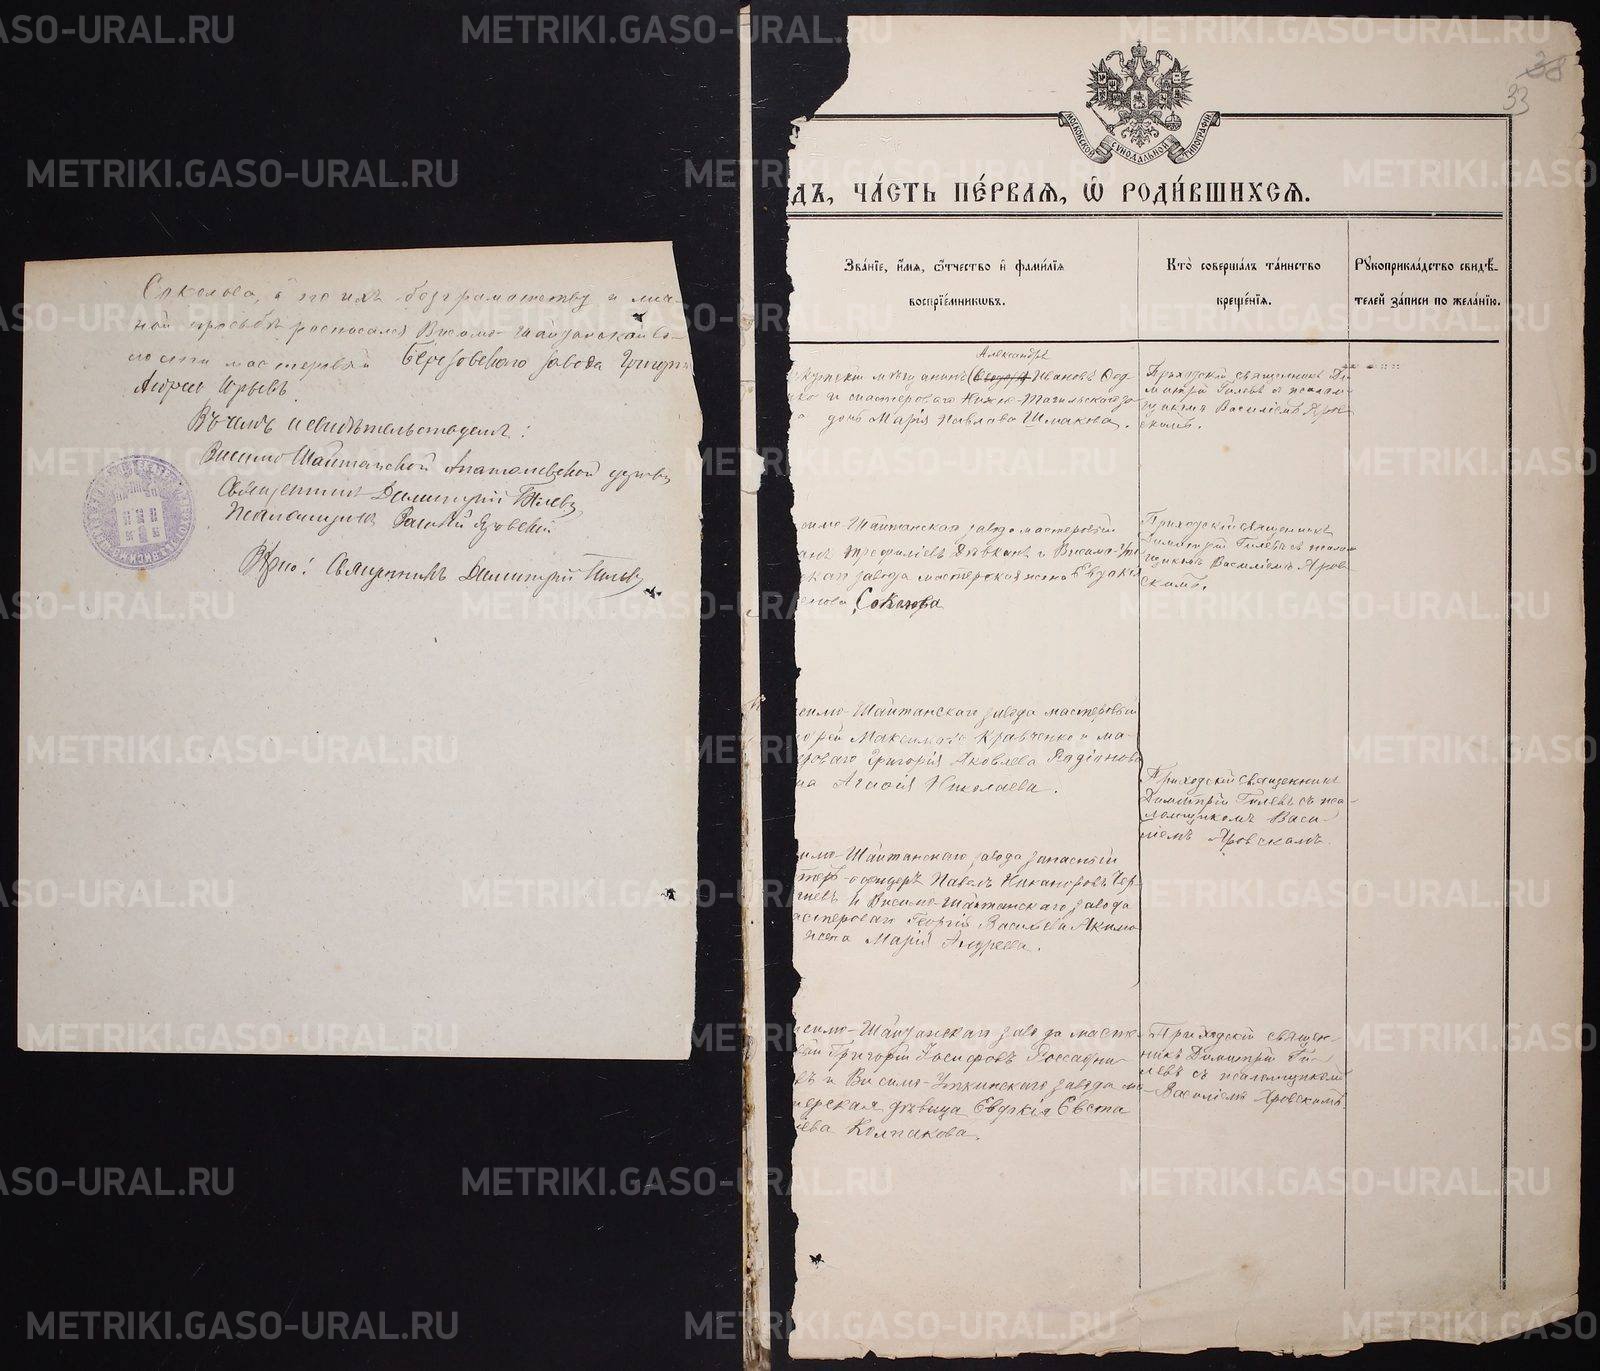 Соколова, а по ихъ безграмотству и лич-
ной просьбѣ росписался Висимо-Шайтанской во-
лости мастеровый Березовскаго завода
Андрей
Въ чемъ и свидѣтельствуемъ:
Висимо Шайтанской Анатолиевской церкви
Священникъ Димитрій Гилевъ
Псаломщикъ Василій Яровскій
Вѣрно: Священникъ Димитрій Гилевъ
38
33
МОСКОВСКОЙ СѴНОДАЛЬНОЙ ТИПОГРАФІИ
ДЪ, ЧА́СТЬ ПЕ́РВАЯ, Ѡ҆ РОДИ́ВШИХСЯ.
Зва́нїе, и҆́мя, ѻ҆́тчество и҆ фами́лїя
воспрїе́мникѡвъ.
Кто̀ соверша́лъ та́инство
креще́нїя.
Рꙋкоприкла́дство свидѣ́-
телей за́писи по жела́нїю.
Александръ
мѣщанинъ Ивановъ
и мастероваго Нижне-Тагильскаго за-
дочь Марія Павлова Шмакова.
Приходскій священникъ Ди-
митрій Гилевъ съ псалом-
щикомъ Василіемъ Яров-
скимъ.
симо-Шайтанскаго завода мастеровый
Трефиліевъ и Висимо-Ут-
скаго завода мастерская жена Евдокія
Соколова
Приходскій священникъ
Димитрій Гилевъ съ псалом-
щикомъ Василіемъ Яров-
скимъ.
симо-Шайтанскаго завода мастеровый
Максимовъ Кравченко и ма-
ероваго Григорія Яковлева Радіонова
на Агафія Николаева.
Приходскій священникъ
Димитрій Гилевъ съ пса-
ломщикомъ Васи-
ліемъ Яровскимъ.
имо-Шайтанскаго завода запасный
теръ-офицеръ Павелъ Никаноровъ Чер-
и Висимо-Шайтанскаго завода
астероваго Георгія Васильева Акимо
жена Марія Андреева.
исимо-Шайтанскаго завода масте
вый Григорій Іосифовъ
въ и Висимо-Уткинскаго завода ма
терская дѣвица Евдокія Евста
іева Колпакова.
Приходскій священ-
никъ Димитрій Ги-
левъ съ псаломщикомъ
Василіемъ Яровскимъ
METRIKI.GASO-URAL.RU